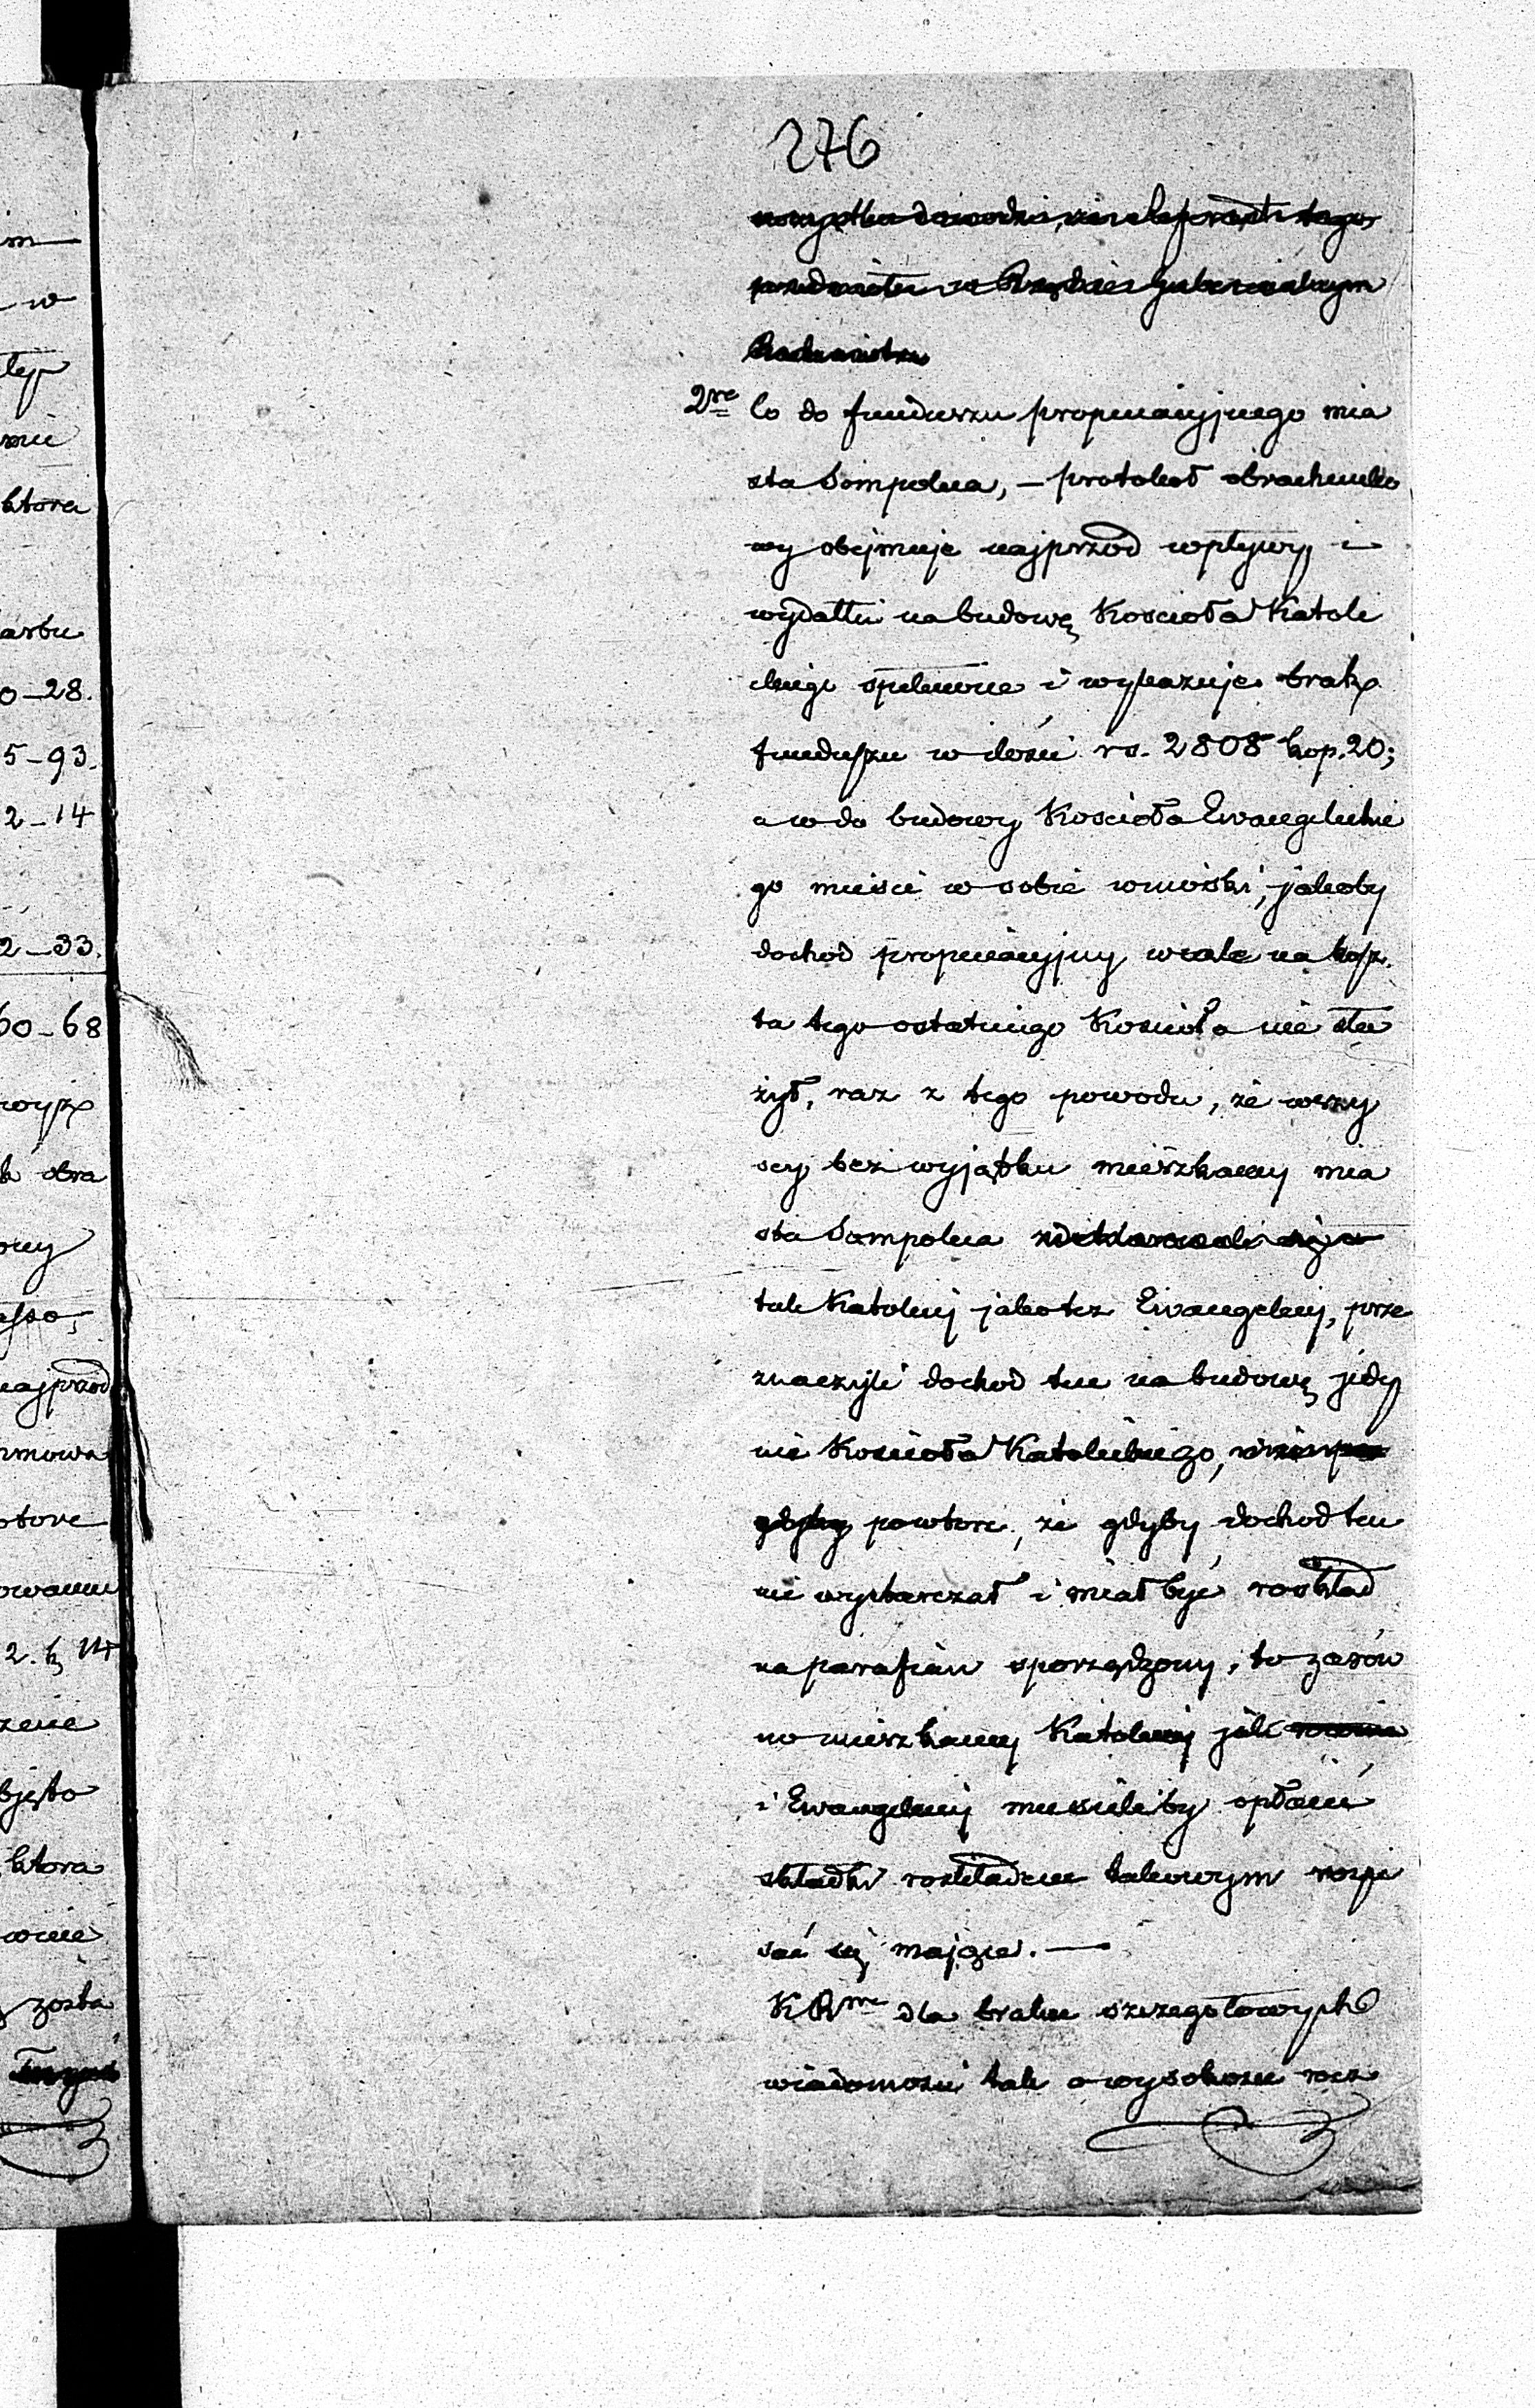 276
wszystko dowodzi, że referent tego
przedmiotu w Rządzie Gubernialnym
2re Co do funduszu propinacyjnego mia
sta Sompolna, – protokoł obrachunko
wy obejmuje najprzod wpływy i
wydatki na budowę Kościoła Katoli
ckiego spełnione i wykazuje brak
funduszu w ilości rs. 2808 kop. 20;
a co do budowy Kościoła Ewangelickie
go mieści w sobie wnioski, jakoby
dochod propinacyjny wcale na kosz
ta tego ostatniego Kościoła nie słu
żył, raz z tego powodu, że wszy
scy bez wyjątku mieszkańcy mia
sta Sompolna zdeklarowali się
tak Katolicy jako też Ewangelicy, prze
znaczyli dochod ten na budowę jedy
nie Kościoła Katolickiego,
gdyby powtore, że gdyby dochod ten
nie wystarczał i miał być rozkład
na parafian sporządzony, to zarów
no mieszkańcy Katolicy jak
i Ewangelicy musieliby opłacić
składki rozkładem takowym rozpi
sać się mające. —
KRme dla braku szczegołowych
wiadomości tak o wysokości rocz
im
w
ktora
0–28.
5–93.
2–14
2–33.
60–68
obra
najprzod
2. k 14
objęto
ktora
zosta